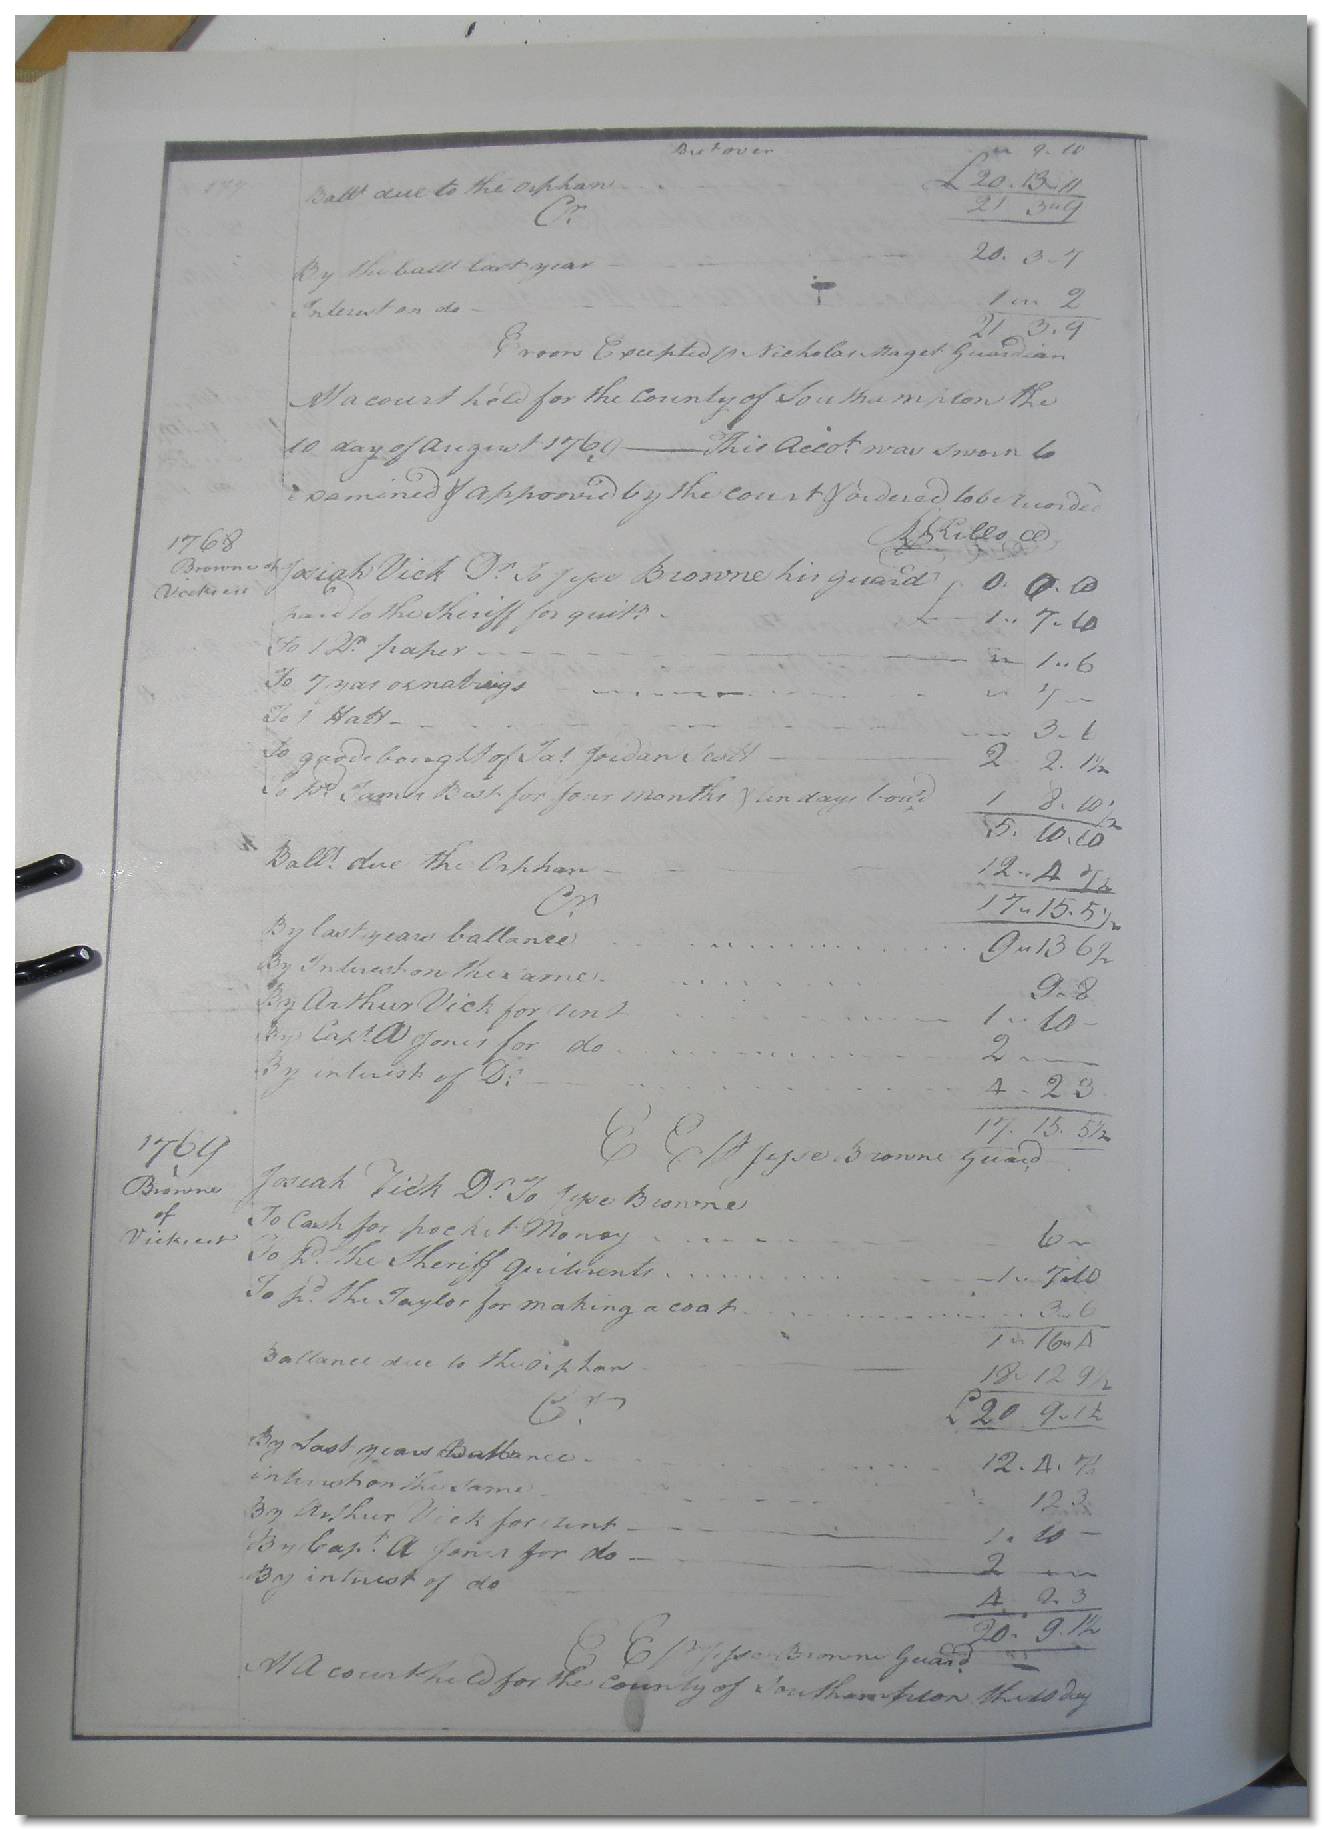 Bro.t over 9. 10
Ball.e due to the orphan £20. 13. 11
Cr. 21 3 9
By the ball.e last year 20. 3. 7
Interest on do 1 " " 2
21 3. 9
Errors Excepted p. Nicholas Maget Guardian
At a court held for the County of Southampton the
10 day of August 1769 This Accot. was sworn to
examined & approved by the court & ordered to be recorded
1768
Browne of
Vicks est
Josiah Vick Dr. To Jesse Browne his guard
paid to the Sheriff for quitts. 1 .. 7. 10
To 1 Dn. paper 1 .. 6
To 7 yds oznabrigs 7 -
To 1 Hatt 3.
To goods bought of Jas. Jordan Scott 2 2. 1½
To pd. James Best for four months & ten days bord 1 8. 10½
5. 10. 10
Ball.e due the Orphan 12 .. 4 7½
Cr. 17 .. 15. 5½
By last years ballance 9 .. 13 6½
By Interest on the same. 9. 8
By Arthur Vick for rent 1 .. 10 -
By Capt. A Jones for do 2
By interest of Do. 4 . 2 3
17. 15. 5½
E E p Jesse Browne guard
1769
Browne
of
Vicks est
Josiah Vick Dr. To Jesse Browne
To Cash for pocket Money 6
To pd. the Sheriff Quitrents 1 .. 7. 10
To pd. the Taylor for making a coat 3. 6
1 .. 16 .. 4
Ballance due to the orphan 18. 12 9½
Cr. £20 9 .. 1½
By Last years Ballance 12. 4. 7½
interest on the same 12 3
By Arthur Vick for rent 1 .. 10 -
By Capt. A Jones for do 2
By interest of do 4 2. 3
20. 9. 1½
E E p Jesse Browne Guard
At A court held for the County of Southampton the 10 day